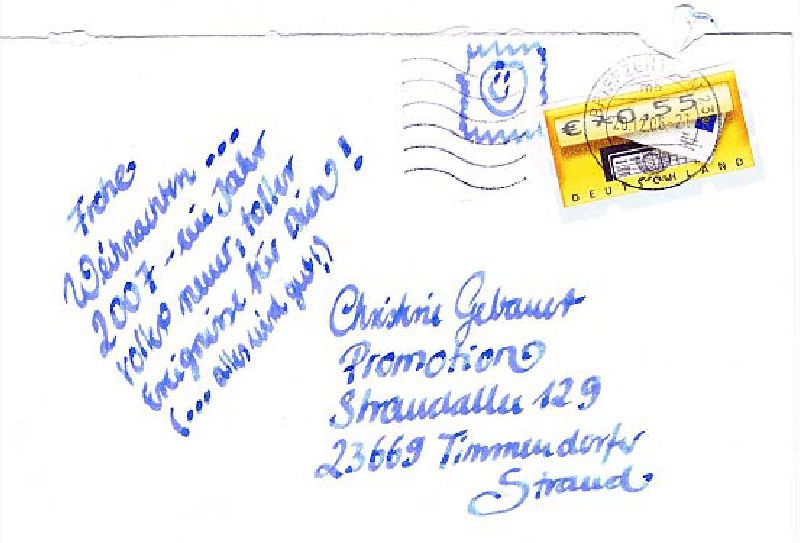 Frohe
Weihnachten ...
2007 - ein Jahr
voller neuer, toller
Ereignisse für Dich!
(... alles wird gut!)
€*0,55
DEUTSCHLAND
BRIEFZENTRUM
Christine Gebauer
Promotion
Strandallee 129
23669 Timmendorfer
Strand